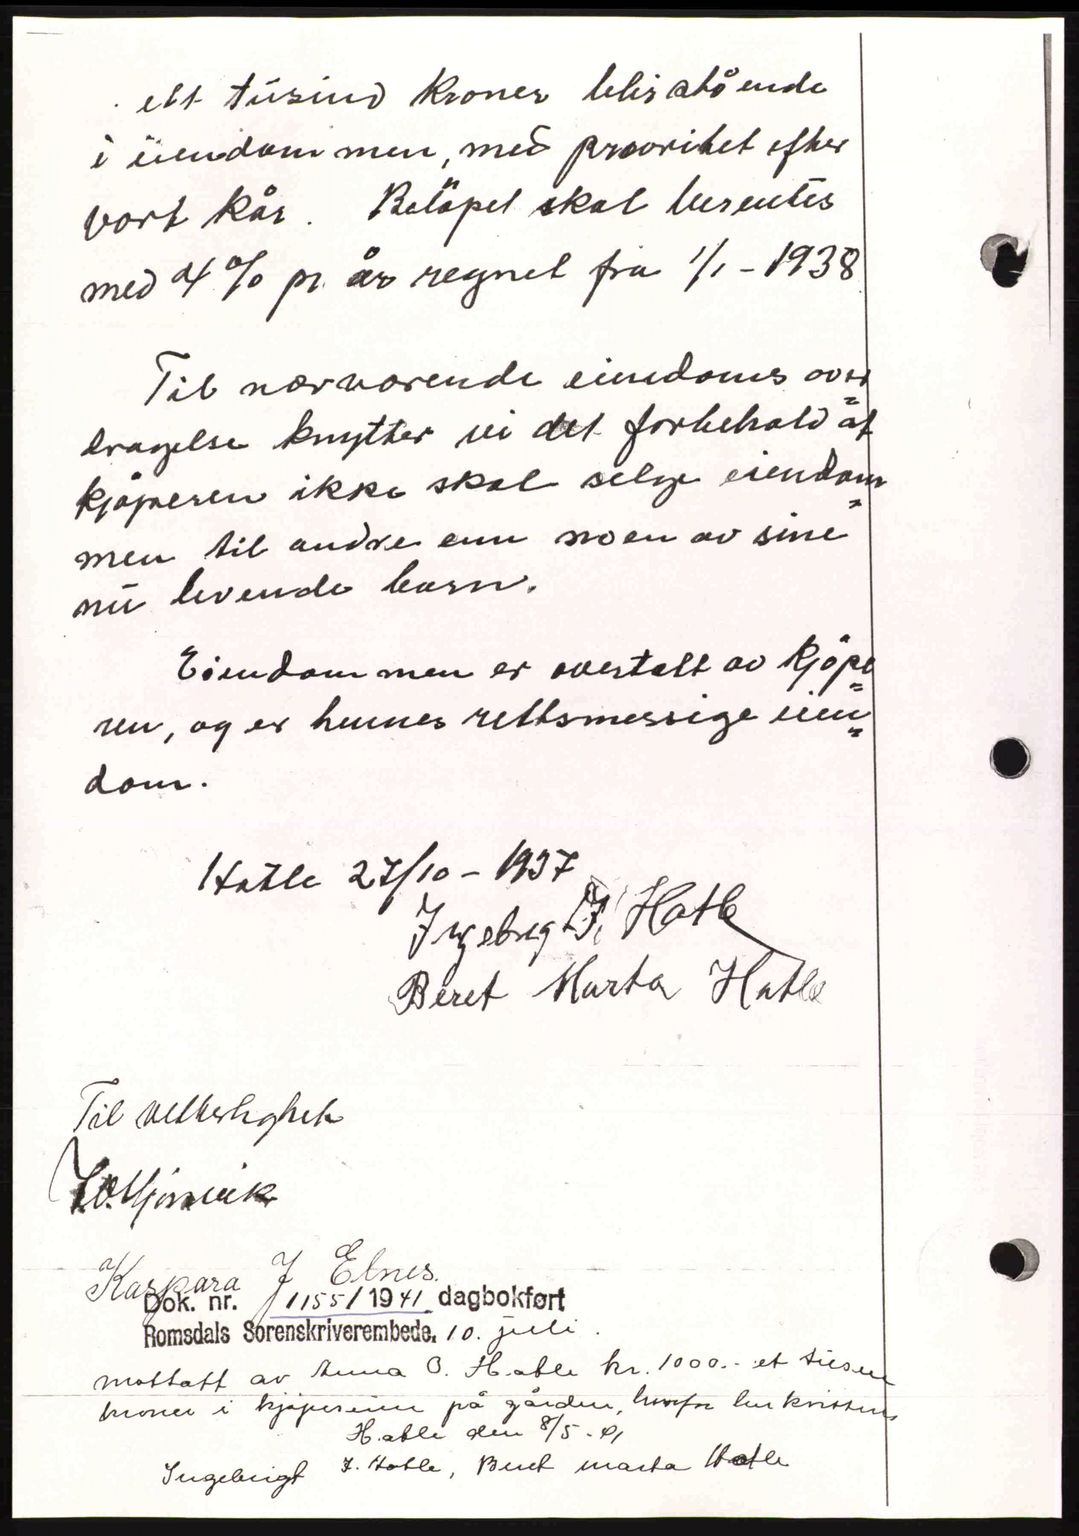 ett tusind kroner blir stående
i eiendommen, med prioritet efter
vort kår. Beløpet skal berentes
med 4 % pr. år regnet fra 1/1 - 1938
Til nærværende eiendoms over=
dragelse knytter vi det forbehold at
kjøperen ikke skal selge eiendom=
men til andre enn noen av sine
nu levende barn.
Eiendommen er overtatt av kjøpe=
ren, og er hennes rettsmessige eien=
dom.
Hatle 27/10 - 1937
Ingebrig J. Hatle
Beret Marta Hatle
Til vitterlighet
Kaspara J Elnes.
Dok. nr. 1155/1941 dagbokført
Romsdals Sorenskriverembede. 10. juli.
mottatt av Anna O. Hatle kr. 1000.- et tusen
kroner i kjøpesum på gården, hvorfor her kvitteres
Hatle den 8/5 - 41
Ingebrigt J. Hatle, Beret Marta Hatle